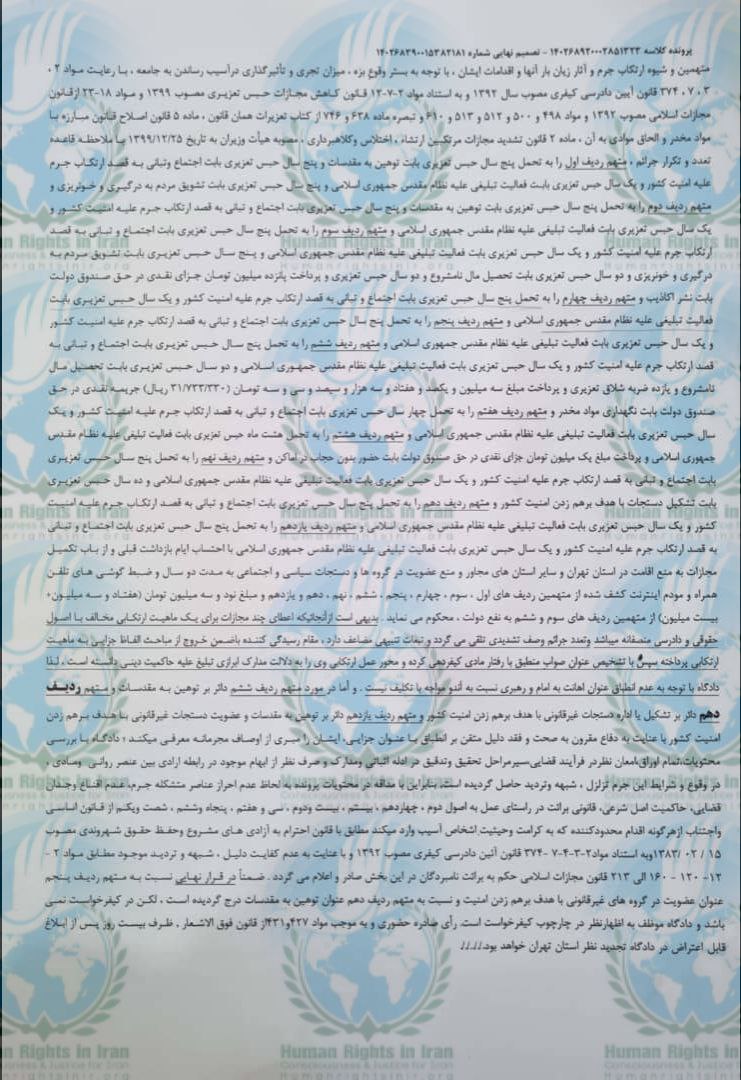 پرونده کلاسه ۱۴۰۲۶۸۹۲۰۰۰۲۸۵۱۳۲۳ - تصمیم نهایی شماره ۱۴۰۲۶۸۳۹۰۰۱۵۳۸۲۱۸۱
متهمین و شیوه ارتکاب جرم و آثار زیان بار آنها و اقدامات ایشان ، با توجه به بستر وقوع بزه ، میزان تجری و تأثیرگذاری درآسیب رساندن به جامعه ، با رعایت مواد ۲ ،
۳ ، ۷ ، ۳۷۴ قانون آیین دادرسی کیفری مصوب سال ۱۳۹۲ و به استناد مواد ۲-۷-۱۲ قانون کاهش مجازات حبس تعزیری مصوب ۱۳۹۹ و مواد ۱۸-۲۳ ازقانون
مجازات اسلامی مصوب ۱۳۹۲ و مواد ۴۹۸ و ۵۰۰ و ۵۱۲ و ۵۱۳ و ۶۱۰ و تبصره ماده ۶۳۸ و ۷۴۶ از کتاب تعزیرات همان قانون ، ماده ۵ قانون اصلاح قانون مبارزه با
مواد مخدر و الحاق موادی به آن ، ماده ۲ قانون تشدید مجازات مرتکبین ارتشاء ، اختلاس وکلاهبرداری ، مصوبه هیأت وزیران به تاریخ ۱۳۹۹/۱۲/۲۵ با ملاحظه قاعده
تعدد و تکرار جرائم ، متهم ردیف اول را به تحمل پنج سال حبس تعزیری بابت توهین به مقدسات و پنج سال حبس تعزیری بابت اجتماع وتبانی به قصد ارتکاب جرم
علیه امنیت کشور و یک سال حبس تعزیری بابت فعالیت تبلیغی علیه نظام مقدس جمهوری اسلامی و پنج سال حبس تعزیری بابت تشویق مردم به درگیری و خونریزی و
متهم ردیف دوم را به تحمل پنج سال حبس تعزیری بابت توهین به مقدسات و پنج سال حبس تعزیری بابت اجتماع و تبانی به قصد ارتکاب جرم علیه امنیت کشور و
یک سال حبس تعزیری بابت فعالیت تبلیغی علیه نظام مقدس جمهوری اسلامی و متهم ردیف سوم را به تحمل پنج سال حبس تعزیری بابت اجتماع و تبانی به قصد
ارتکاب جرم علیه امنیت کشور و یک سال حبس تعزیری بابت فعالیت تبلیغی علیه نظام مقدس جمهوری اسلامی و پنج سال حبس تعزیری بابت تشویق مردم به
درگیری و خونریزی و دو سال حبس تعزیری بابت تحصیل مال نامشروع و دو سال حبس تعزیری و پرداخت پانزده میلیون تومان جزای نقدی در حق صندوق دولت
بابت نشر اکاذیب و متهم ردیف چهارم را به تحمل پنج سال حبس تعزیری بابت اجتماع و تبانی به قصد ارتکاب جرم علیه امنیت کشور و یک سال حبس تعزیری بابت
فعالیت تبلیغی علیه نظام مقدس جمهوری اسلامی و متهم ردیف پنجم را به تحمل پنج سال حبس تعزیری بابت اجتماع و تبانی به قصد ارتکاب جرم علیه امنیت کشور
و یک سال حبس تعزیری بابت فعالیت تبلیغی علیه نظام مقدس جمهوری اسلامی و متهم ردیف ششم را به تحمل پنج سال حبس تعزیری بابت اجتماع و تبانی به
قصد ارتکاب جرم علیه امنیت کشور و یک سال حبس تعزیری بابت فعالیت تبلیغی علیه نظام مقدس جمهوری اسلامی و دو سال حبس تعزیری بابت تحصیل مال
نامشروع و یازده ضربه شلاق تعزیری و پرداخت مبلغ سه میلیون و یکصد و هفتاد و سه هزار و سیصد و سی و سه تومان (۳۱/۷۳۳/۳۳۰ ریال) جریمه نقدی در حق
صندوق دولت بابت نگهداری مواد مخدر و متهم ردیف هفتم را به تحمل چهار سال حبس تعزیری بابت اجتماع و تبانی به قصد ارتکاب جرم علیه امنیت کشور و یک
سال حبس تعزیری بابت فعالیت تبلیغی علیه نظام مقدس جمهوری اسلامی و متهم ردیف هشتم را به تحمل هشت ماه حبس تعزیری بابت فعالیت تبلیغی علیه نظام مقدس
جمهوری اسلامی و پرداخت مبلغ یک میلیون تومان جزای نقدی در حق صندوق دولت بابت حضور بدون حجاب در اماکن و متهم ردیف نهم را به تحمل پنج سال حبس تعزیری
بابت اجتماع و تبانی به قصد ارتکاب جرم علیه امنیت کشور و یک سال حبس تعزیری بابت فعالیت تبلیغی علیه نظام مقدس جمهوری اسلامی و ده سال حبس تعزیری
بابت تشکیل دستجات با هدف برهم زدن امنیت کشور و متهم ردیف دهم را به تحمل پنج سال حبس تعزیری بابت اجتماع و تبانی به قصد ارتکاب جرم علیه امنیت
کشور و یک سال حبس تعزیری بابت فعالیت تبلیغی علیه نظام مقدس جمهوری اسلامی و متهم ردیف یازدهم را به تحمل پنج سال حبس تعزیری بابت اجتماع و تبانی
به قصد ارتکاب جرم علیه امنیت کشور و یک سال حبس تعزیری بابت فعالیت تبلیغی علیه نظام مقدس جمهوری اسلامی با احتساب ایام بازداشت قبلی و از باب تکمیل
مجازات به منع اقامت در استان تهران و سایر استان های مجاور و منع عضویت در گروه ها و دستجات سیاسی و اجتماعی به مدت دو سال و ضبط گوشی های تلفن
همراه و مودم اینترنت کشف شده از متهمین ردیف های اول ، سوم ، چهارم ، پنجم ، ششم ، نهم ، دهم و یازدهم و مبلغ نود و سه میلیون تومان (هفتاد و سه میلیون+
بیست میلیون) از متهمین ردیف های سوم و ششم به نفع دولت ، محکوم می نماید . بدیهی است ازآنجائیکه اعطای چند مجازات برای یک ماهیت ارتکابی مخالف با اصول
حقوقی و دادرسی منصفانه میباشد وتعدد جرائم وصف تشدیدی تلقی می گردد و تبعات تنبیهی مضاعف دارد ، مقام رسیدگی کننده باضمن خروج از مباحث الفاظ جزایی به ماهیت
ارتکابی پرداخته سپس با تشخیص عنوان صواب منطبق با رفتار مادی کیفردهی کرده و محور عمل ارتکابی وی را به دلالت مدارک ابرازی تبلیغ علیه حاکمیت دینی دانسته است ، لذا
دادگاه با توجه به عدم انطباق عنوان اهانت به امام و رهبری نسبت به آندو مواجه با تکلیف نیست . و أما در مورد متهم ردیف ششم دائر بر توهین به مقدسات و متهم ردیف
دهم دائر بر تشکیل یا اداره دستجات غیرقانونی با هدف برهم زدن امنیت کشور و متهم ردیف یازدهم دائر بر توهین به مقدسات و عضویت دستجات غیرقانونی با هدف برهم زدن
امنیت کشور با عنایت به دفاع مقرون به صحت و فقد دلیل متقن بر انطباق با عنوان جزایی، ایشان را مبری از اوصاف مجرمانه معرفی میکند ؛ دادگاه با بررسی
محتویات،تمام اوراق،امعان نظردر فرآیند قضایی،سیرمراحل تحقیق وتدقیق در ادله اثباتی ومدارک و صرف نظر از ابهام موجود در رابطه ارادی بین عنصر روانی ومادی ،
در وقوع و شرایط این جرم تزلزل ، شبهه وتردید حاصل گردیده است، بنابراین با مداقه در محتویات پرونده به لحاظ عدم احراز عناصر متشکله جرم،عدم اقناع وجدان
قضایی، حاکمیت اصل شرعی، قانونی برائت در راستای عمل به اصول دوم ، چهاردهم ، بیستم ، بیست ودوم ، سی و هفتم ، پنجاه وششم ، شصت ویکم از قانون اساسی
واجتناب ازهرگونه اقدام محدودکننده که به کرامت وحیثیت اشخاص آسیب وارد میکند مطابق با قانون احترام به آزادی های مشروع وحفظ حقوق شهروندی مصوب
۱۵ / ۰۲ /۱۳۸۳ وبه استناد مواد۲-۳-۴-۷ -۳۷۴ قانون آئین دادرسی کیفری مصوب ۱۳۹۲ و با عنایت به عدم کفایت دلیل ، شبهه و تردید موجود مطابق مواد ۲ -
۱۲- ۱۲۰ - ۱۶۰ الی ۲۱۳ قانون مجازات اسلامی حکم به برائت نامبردگان در این بخش صادر و اعلام می گردد . ضمناً در قرار نهایی نسبت به متهم ردیف پنجم
عنوان عضویت در گروه های غیرقانونی با هدف برهم زدن امنیت و نسبت به متهم ردیف دهم عنوان توهین به مقدسات درج گردیده است ، لکن در کیفرخواست نمی
باشد و دادگاه موظف به اظهارنظر در چارچوب کیفرخواست است. رأی صادره حضوری و به موجب مواد ۴۲۷و۴۳۱از قانون فوق الاشعار ، ظرف بیست روز پس از ابلاغ
قابل اعتراض در دادگاه تجدید نظر استان تهران خواهد بود./././.
Human Rights in Iran
Consciousness & Justice for Iran
Humanrightsinir.org